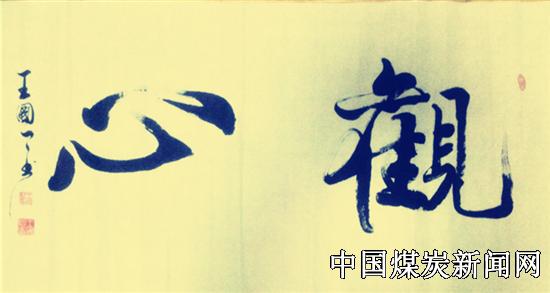 觀心
王國一書
中国煤炭新闻网